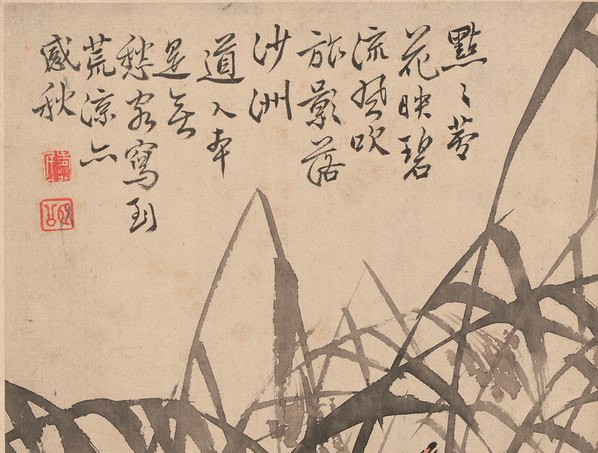 點〻蓼
花映碧
流風吹
旅影落
沙洲
道人本
是無
愁客寫到
荒涼亦
感秋